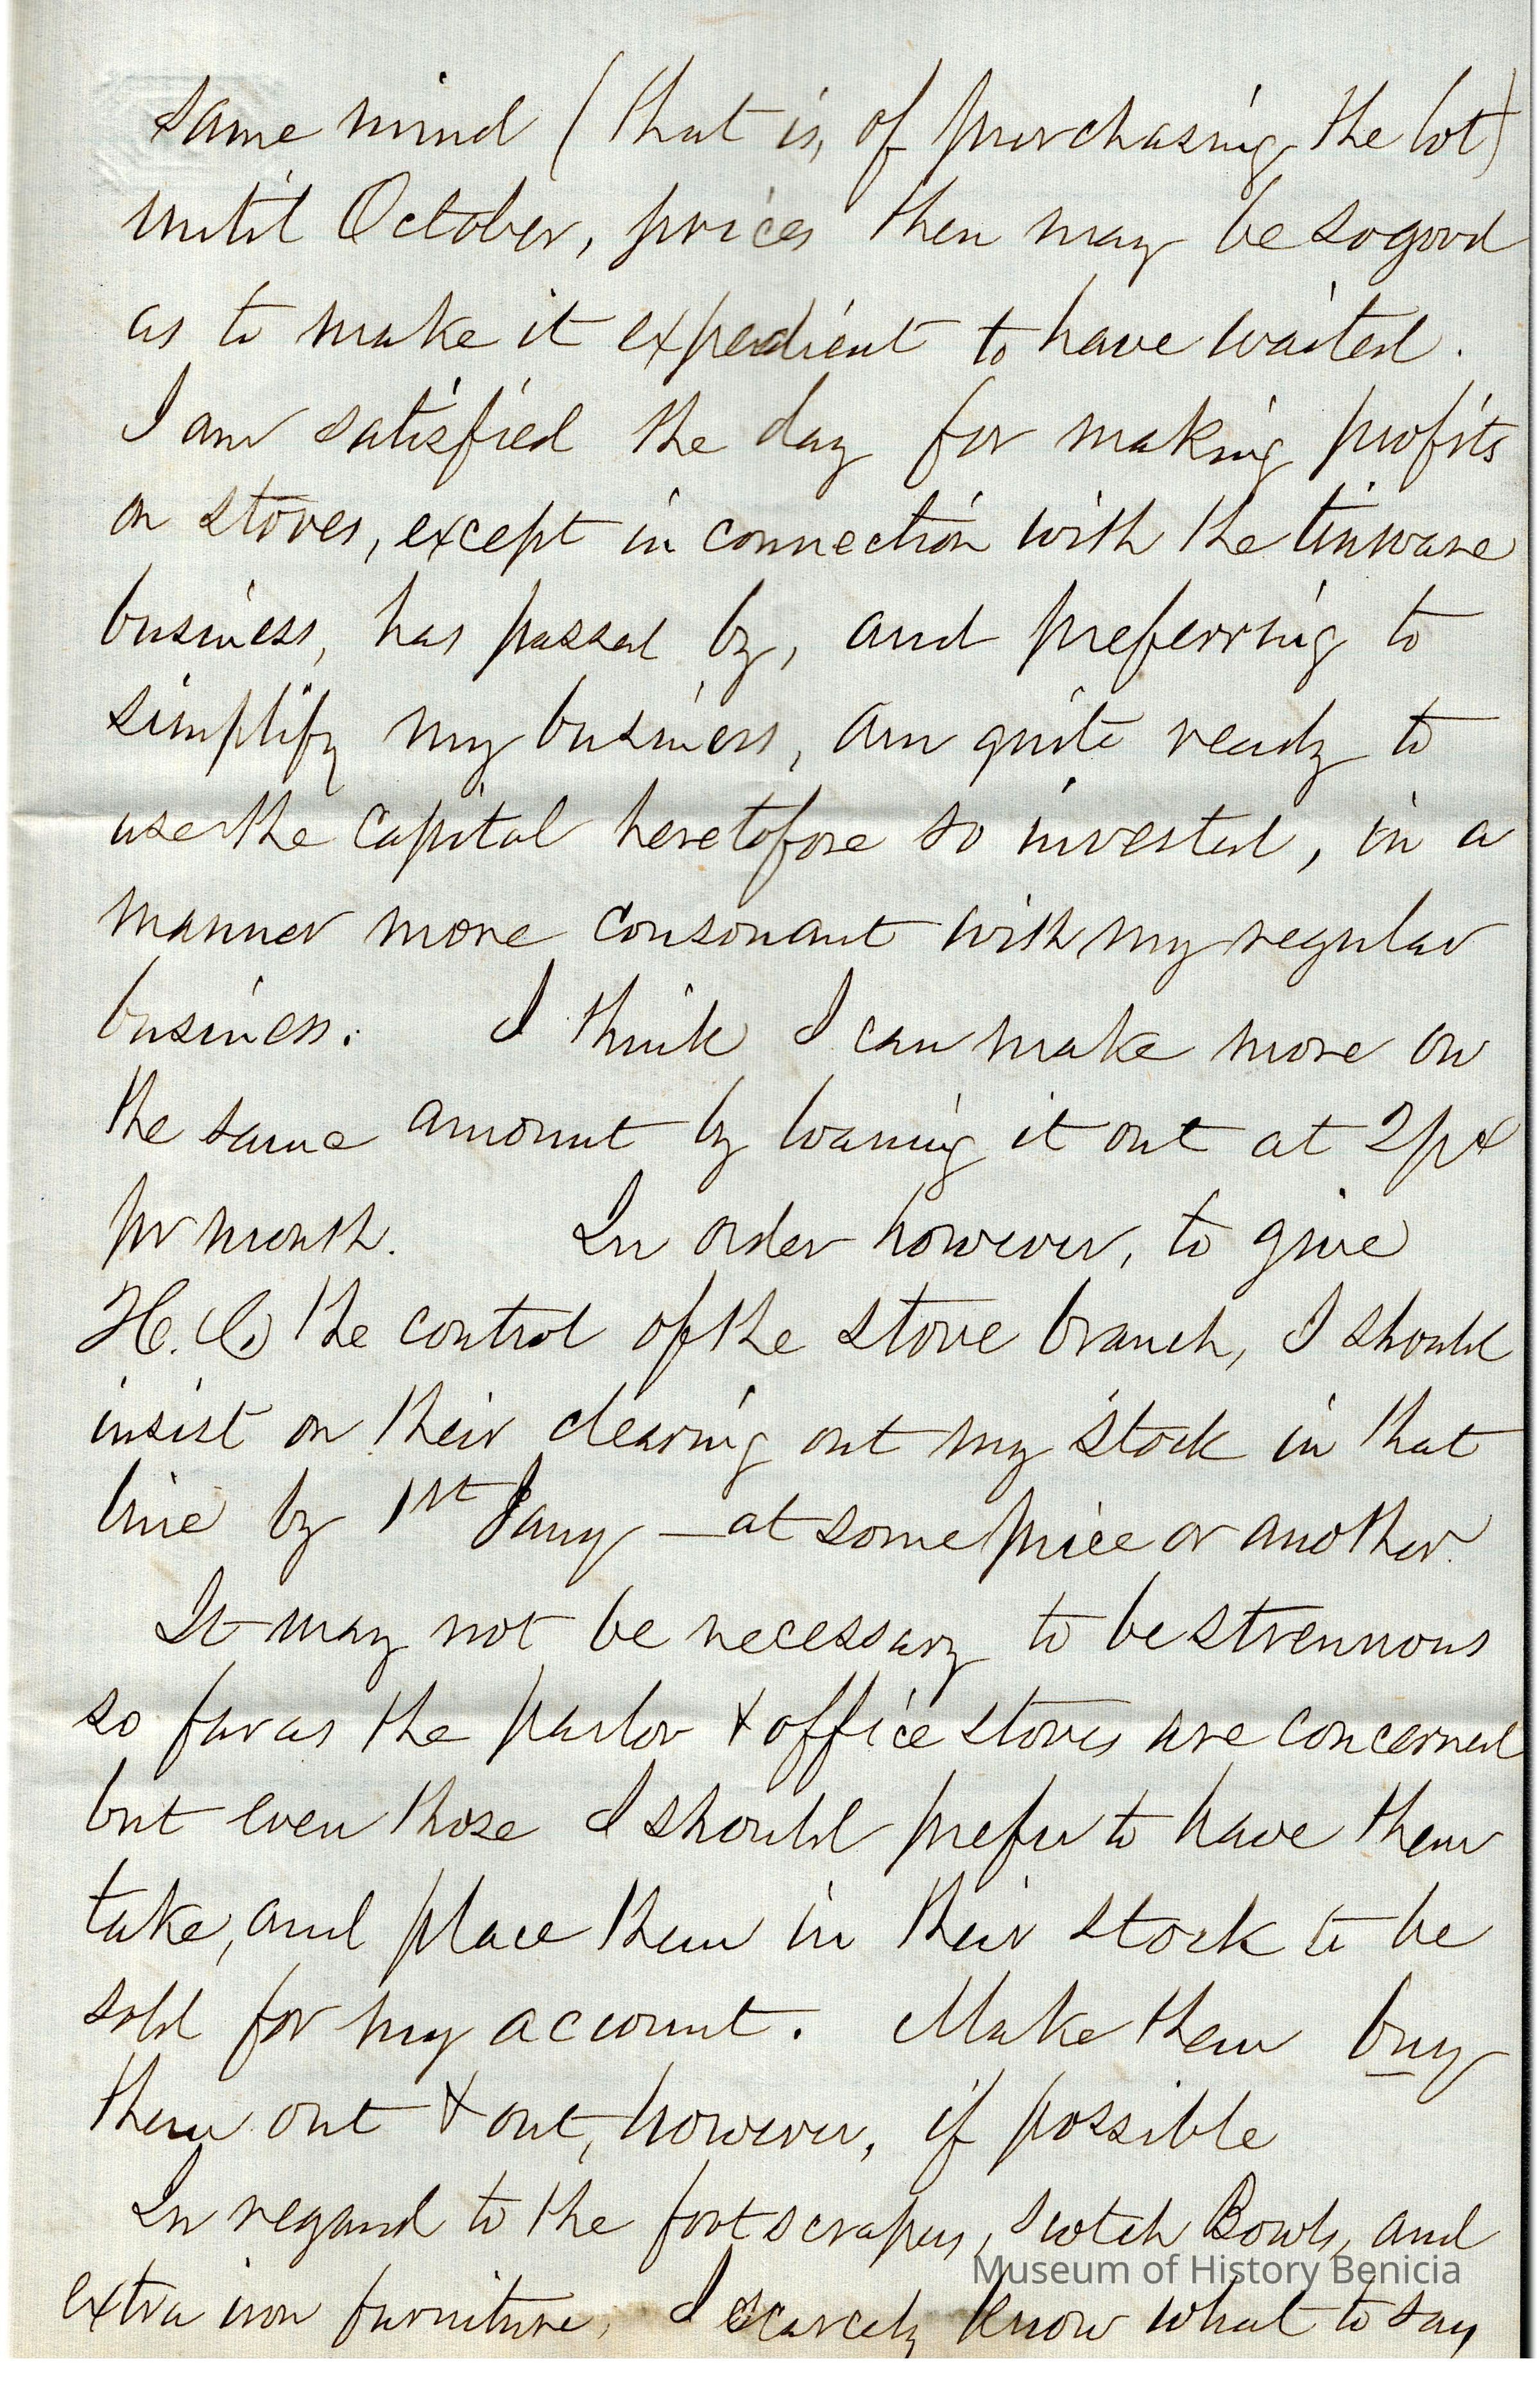 same mind (that is, of purchasing the lot)
until October, prices then may be so good
as to make it expedient to have waited.
I am satisfied the day for making profits
on stoves, except in connection with the tinware
business, has passed by, and preferring to
simplify my business, am quite ready to
use the capital heretofore so invested, in a
manner more consonant with my regular
business. I think I can make more on
the same amount by loaning it out at 2 pct
pr month. In order however, to give
H. Co the control of the stove branch, I should
insist on their clearing out my stock in that
line by 1st Jany — at some price or another.
It may not be necessary to be strenuous
so far as the parlor & office stoves are concerned
but even those I should prefer to have them
take, and place them in their stock to be
sold for my account. Make them buy
them out & out, however, if possible
In regard to the footscrapers, Scotch Bowls, and
Museum of History Benicia
extra iron furniture, I scarcely know what to say